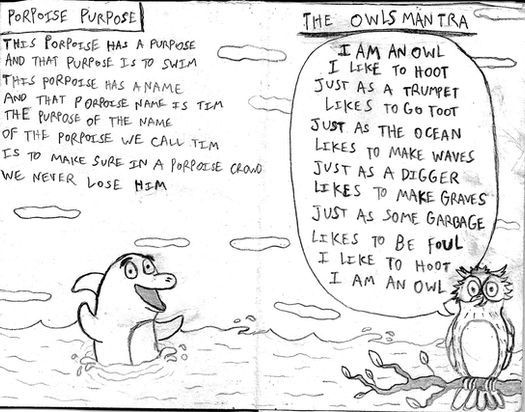 PORPOISE PURPOSE
THIS PORPOISE HAS A PURPOSE
AND THAT PURPOSE IS TO SWIM
THIS PORPOISE HAS A NAME
AND THAT PORPOISE NAME IS TIM
THE PURPOSE OF THE NAME
OF THE PORPOISE WE CALL TIM
IS TO MAKE SURE IN A PORPOISE CROWD
WE NEVER LOSE HIM
THE OWLS MANTRA
I AM AN OWL
I LIKE TO HOOT
JUST AS A TRUMPET
LIKES TO GO TOOT
JUST AS THE OCEAN
LIKES TO MAKE WAVES
JUST AS A DIGGER
LIKES TO MAKE GRAVES
JUST AS SOME GARBAGE
LIKES TO BE FOUL
I LIKE TO HOOT
I AM AN OWL